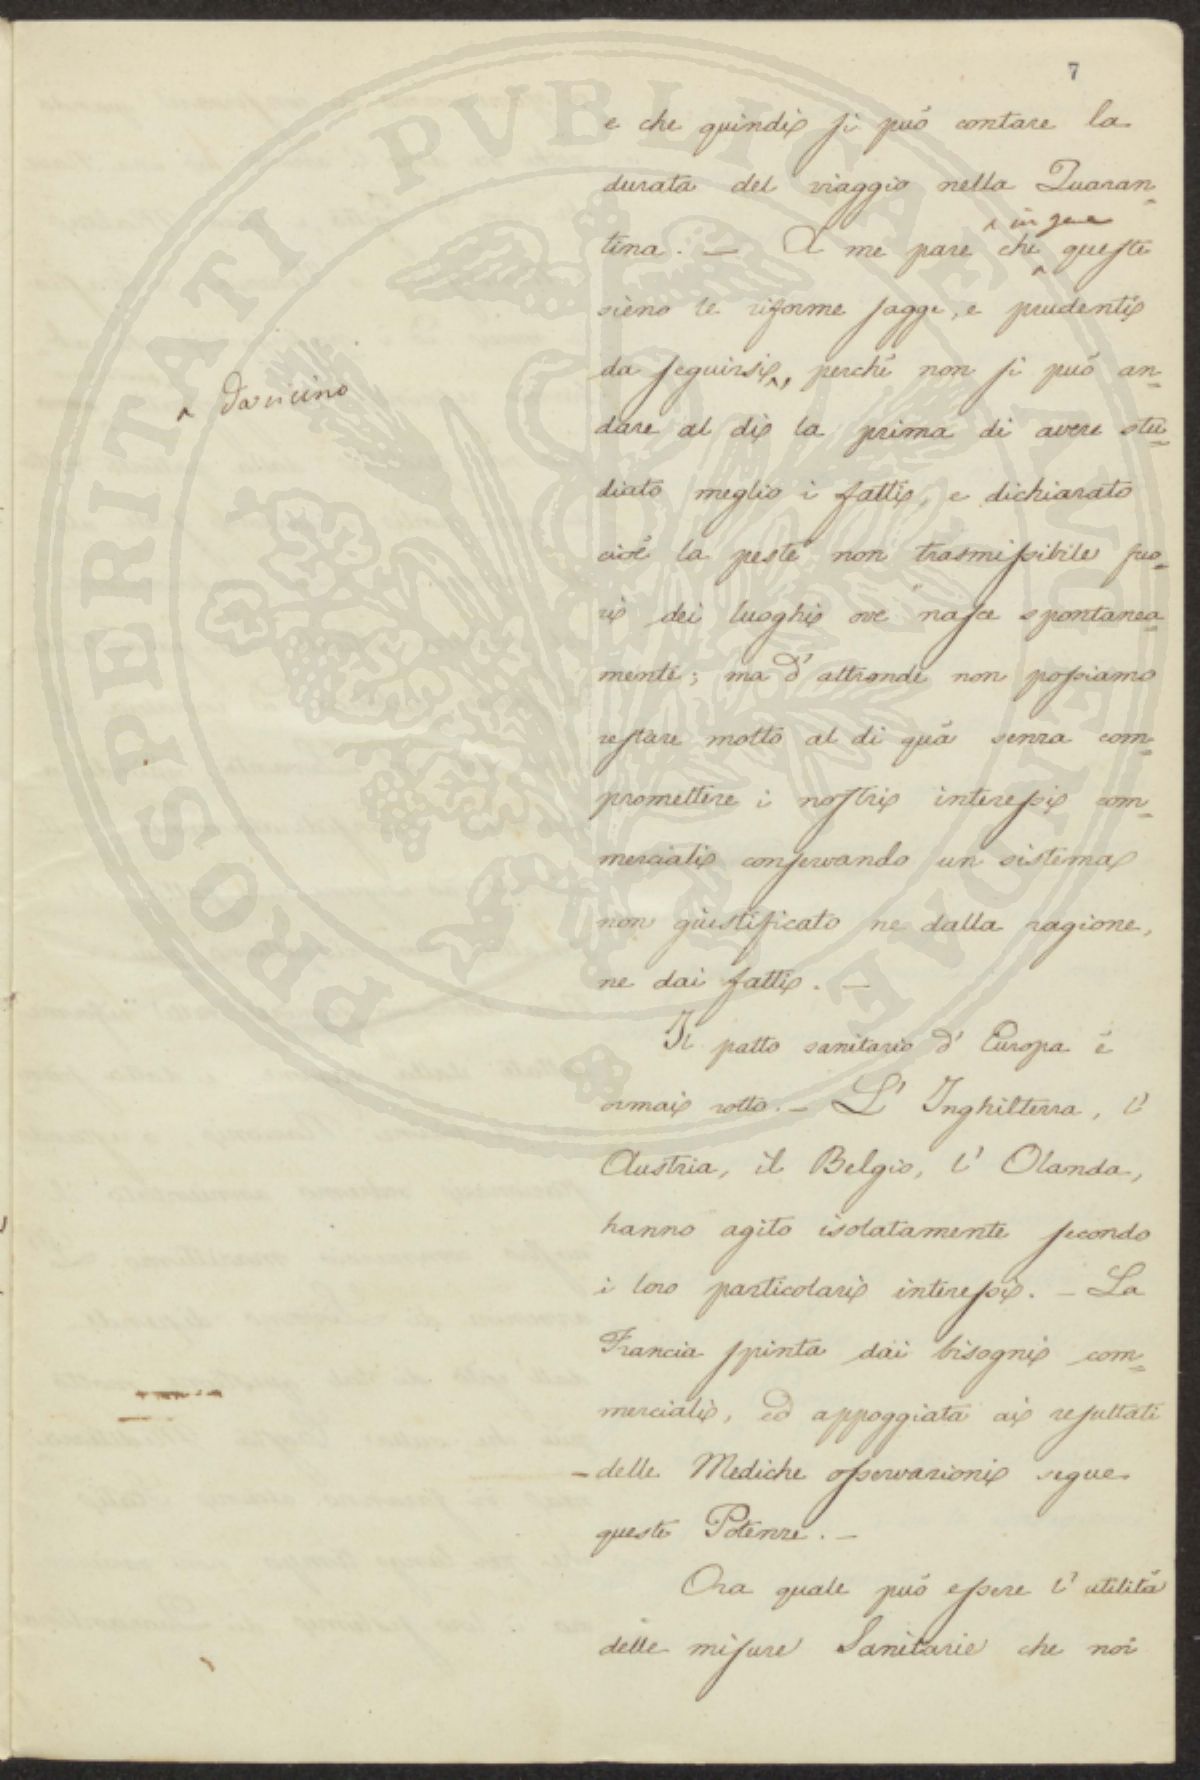 7
e che quindi si può contare la
durata del viaggio nella Quaran=
tina. — A me pare che ^ queste
sieno le riforme sagge, e prudenti
da seguirsi ^, perchè non si può an=
^ da vicino
dare al di la prima di avere stu=
diato meglio i fatti, e dichiarato
cioè la peste non trasmissibile fuo=
ri dei luoghi ove nasce spontanea
mente; ma d' altronde non possiamo
restare molto al di quà senza com=
promettere i nostri interessi com=
merciali conservando un sistema
non giustificato ne dalla ragione,
ne dai fatti. —
Il patto sanitario d' Europa è
ormai rotto. — L' Inghilterra, l'
Austria, il Belgio, l' Olanda,
hanno agito isolatamente secondo
i loro particolari interessi. — La
Francia spinta dai bisogni com=
merciali, ed appoggiata ai resultati
delle Mediche osservazioni segue
queste Potenze. —
Ora quale può essere l' utilità
delle misure Sanitarie che noi
PROSPERITATI PUBLICAE AUGENDAE